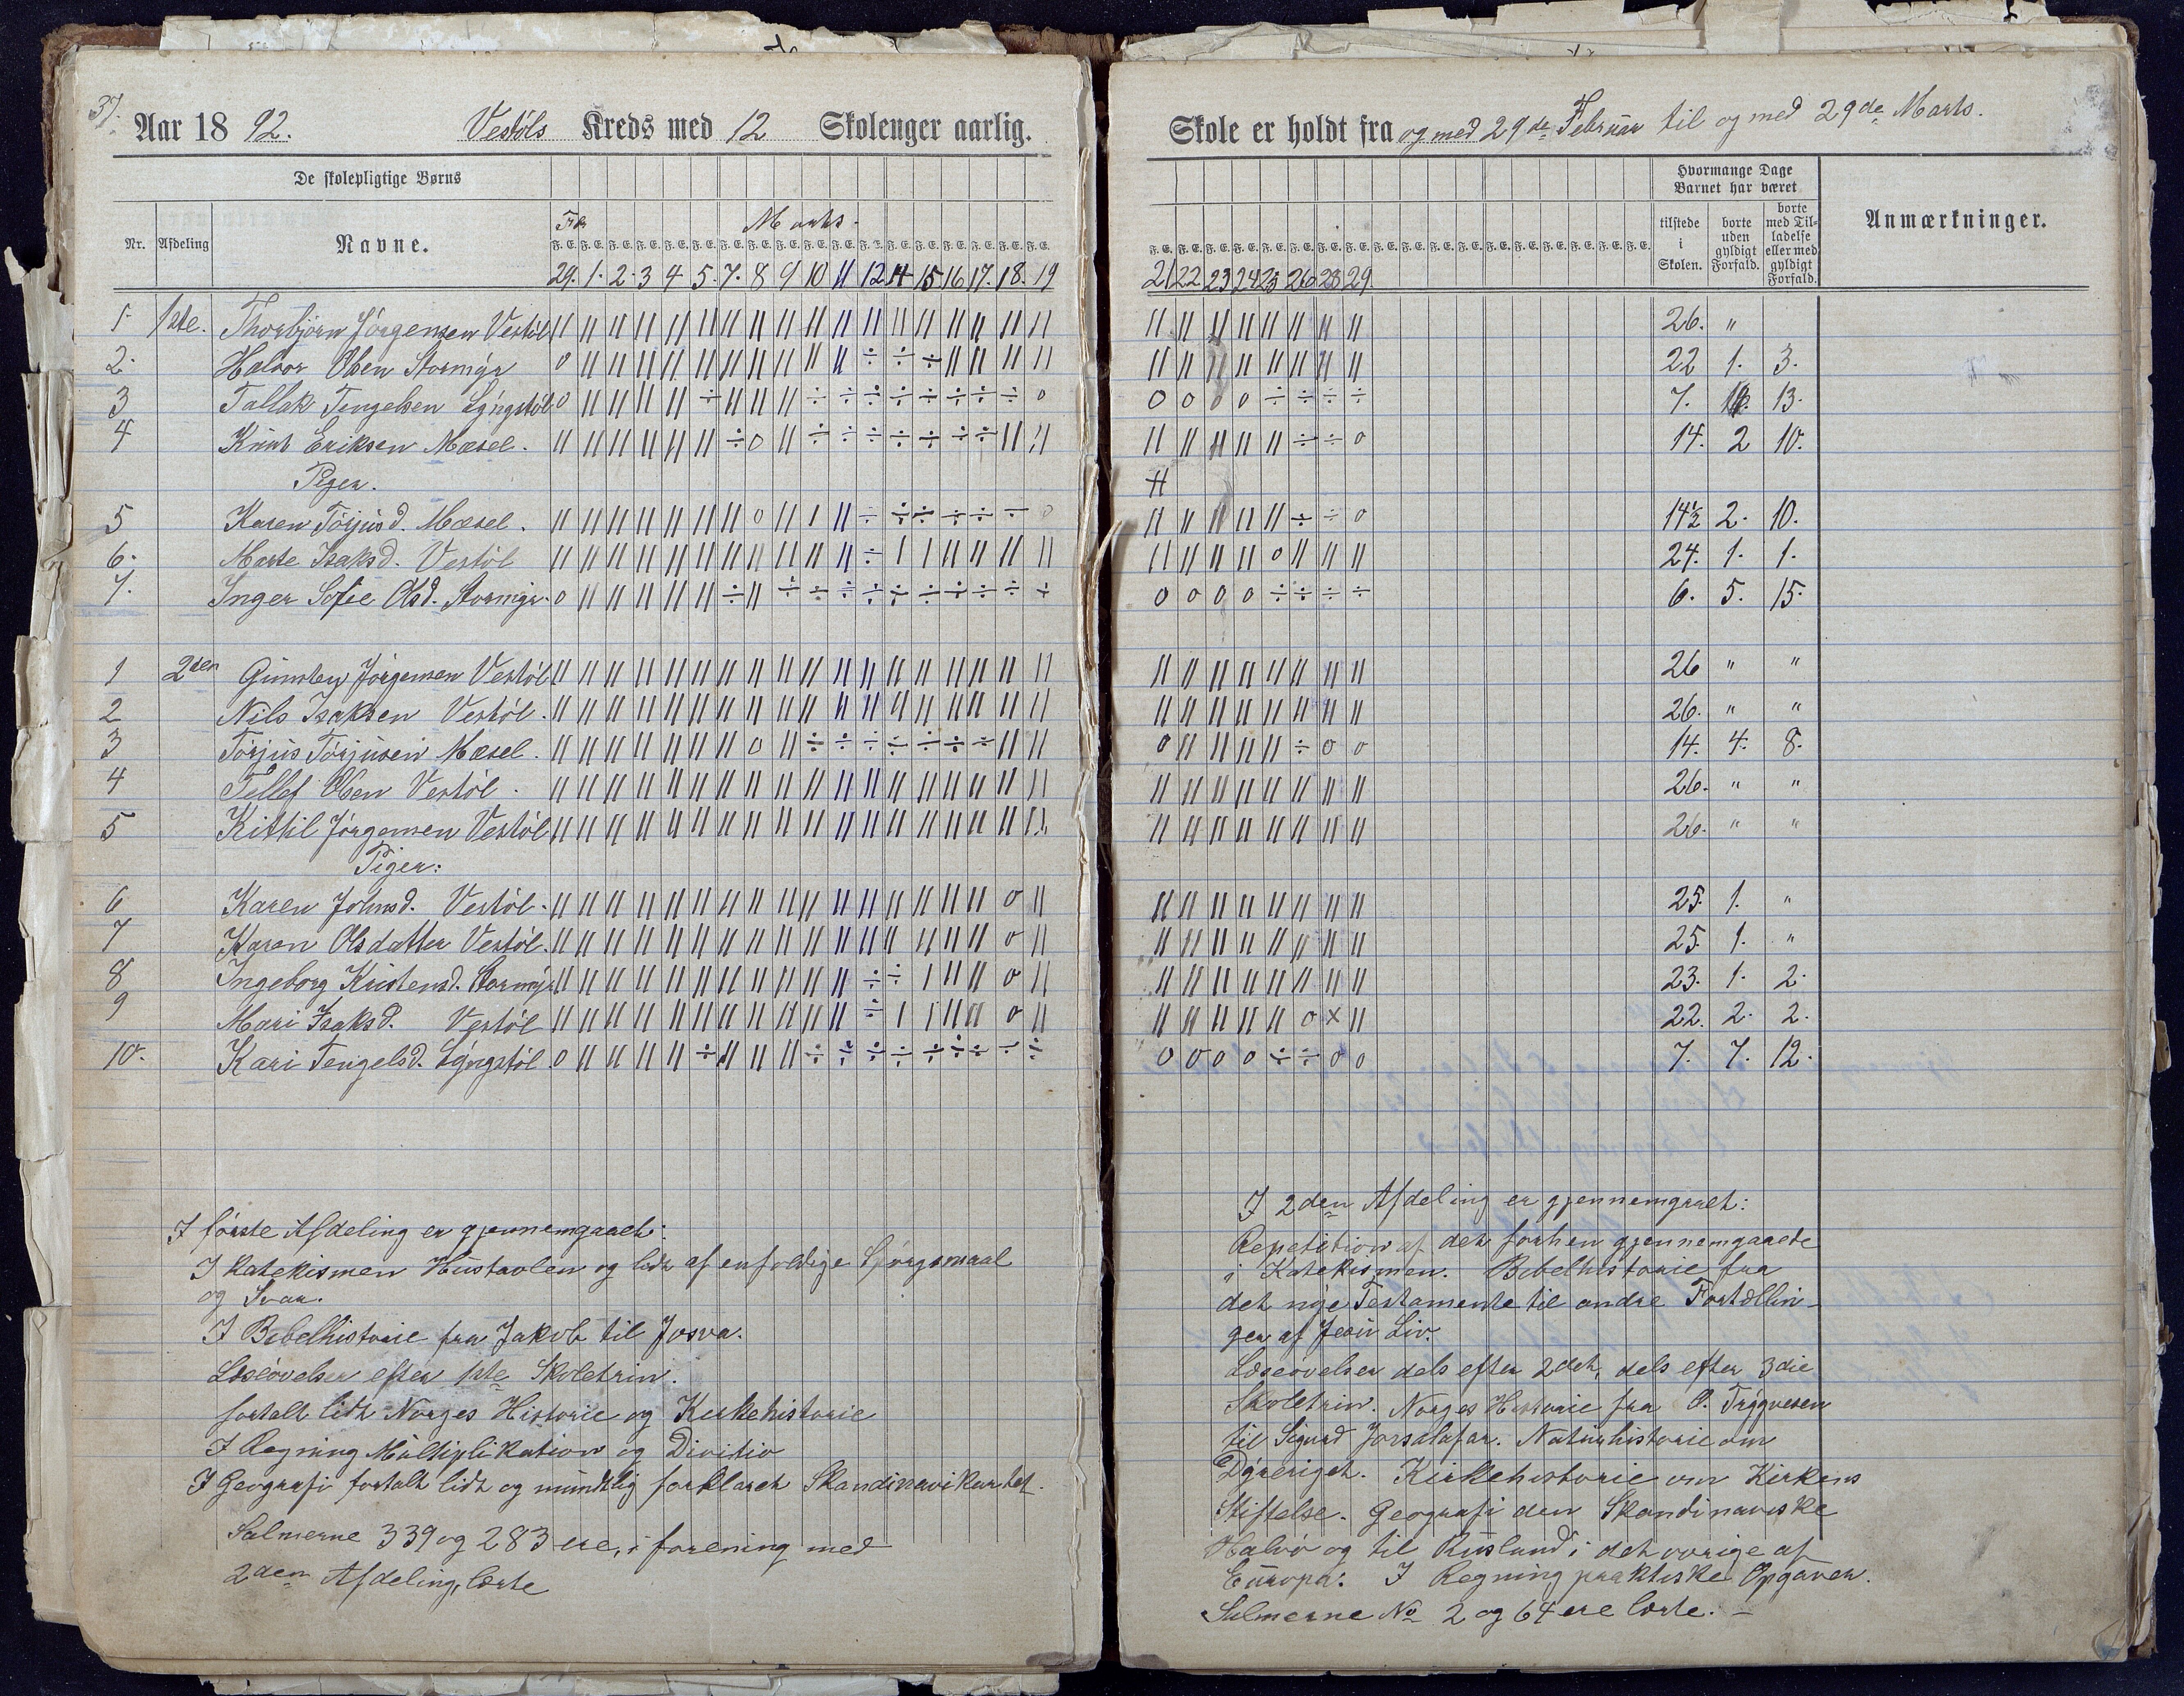 37.
Aar 1892. Vestöls Kreds med 12 Skoleuger aarlig.
De skolepligtige Børns
Nr. Afdeling Navne.
Feb Marts.
F. E. F. E. F. E. F. E. F. E. F. E. F. E. F. E. F. E. F. E. F. E. F. E. F. E. F. E. F. E. F. E. F. E. F. E.
29. 1. 2. 3 4 5. 7. 8 9 10 11 12 14 15. 16 17. 18. 19
1. 1ste. Thorbjörn Jörgensen Vestöl
2. Halvor Olsen Stormyr
3 Tallak Tengelsen Lyngstöl
4 Knut Eriksen Mæsel.
Piger.
5 Karen Törjusd. Mæsel.
6. Marte Isaksd. Vestöl
7. Inger Sofie Olsd. Stormyr.
1 2den Gunsten Jörgensen Vestöl
2 Nils Isaksen Vestöl.
3 Törjus Törjusen Mæsel.
4 Tellef Olsen Vestöl.
5 Kittil Jörgensen Vestöl
Piger:
6 Karen Johnsd. Vestöl.
7 Karen Olsdatter Vestöl.
8 Ingeborg Kristensd. Stormyr
9 Mari Isaksd. Vestöl
10. Kari Tengelsd. Lyngstöl.
I förste Afdeling er gjennemgaaet:
I Katekismen Hustavlen og lidt af enfoldige Spørgsmaal
og Svar.
I Bibelhistorie fra Jakob til Josva.
Læseövelser efter 1ste Skoletrin.
fortalt lidt Norges Historie og Kirkehistorie
I Regning Multiplikation og Divitio
I Geografi fortalt lidt og mundtlig forklaret Skandinavikartet.
Salmerne 339 og 283 ere, i forening med
2den Afdeling, lærte
Skole er holdt fra og med 29de Februar til og med 29de Marts.
Hvormange Dage
Barnet har været
tilstede i Skolen. borte uden gyldigt Forfald. borte med Tilladelse eller med gyldigt Forfald.
Anmærkninger.
21 22 23 24 25 26 28 29.
26. "
22 1. 3.
7. 13.
14. 2 10.
14½ 2. 10.
24. 1. 1.
6. 5. 15.
26 " "
26. " "
14. 4. 8.
26. " "
26. " "
25. 1. "
25. 1. "
23. 1. 2.
22. 2. 2.
7. 7. 12.
I 2den Afdeling er gjennemgaaet:
Repetition af det forhen gjennemgaaede
i Katekismen. Bibelhistorie fra
det nye Testamente til andre Fortællin-
ger af Jesu Liv.
Læseövelser dels efter 2det, dels efter 3die
Skoletrin. Norges Historie fra O. Trygvesen
til Sigurd Jorsalafar. Naturhistorie om
Dyreriget. Kirkehistorie om Kirkens
Stiftelse. Geografi den Skandinaviske
Halvö og til Rusland i det övrige af
Europa: I Regning praktiske Opgaver.
Salmerne No 2 og 64 ere lærte. –